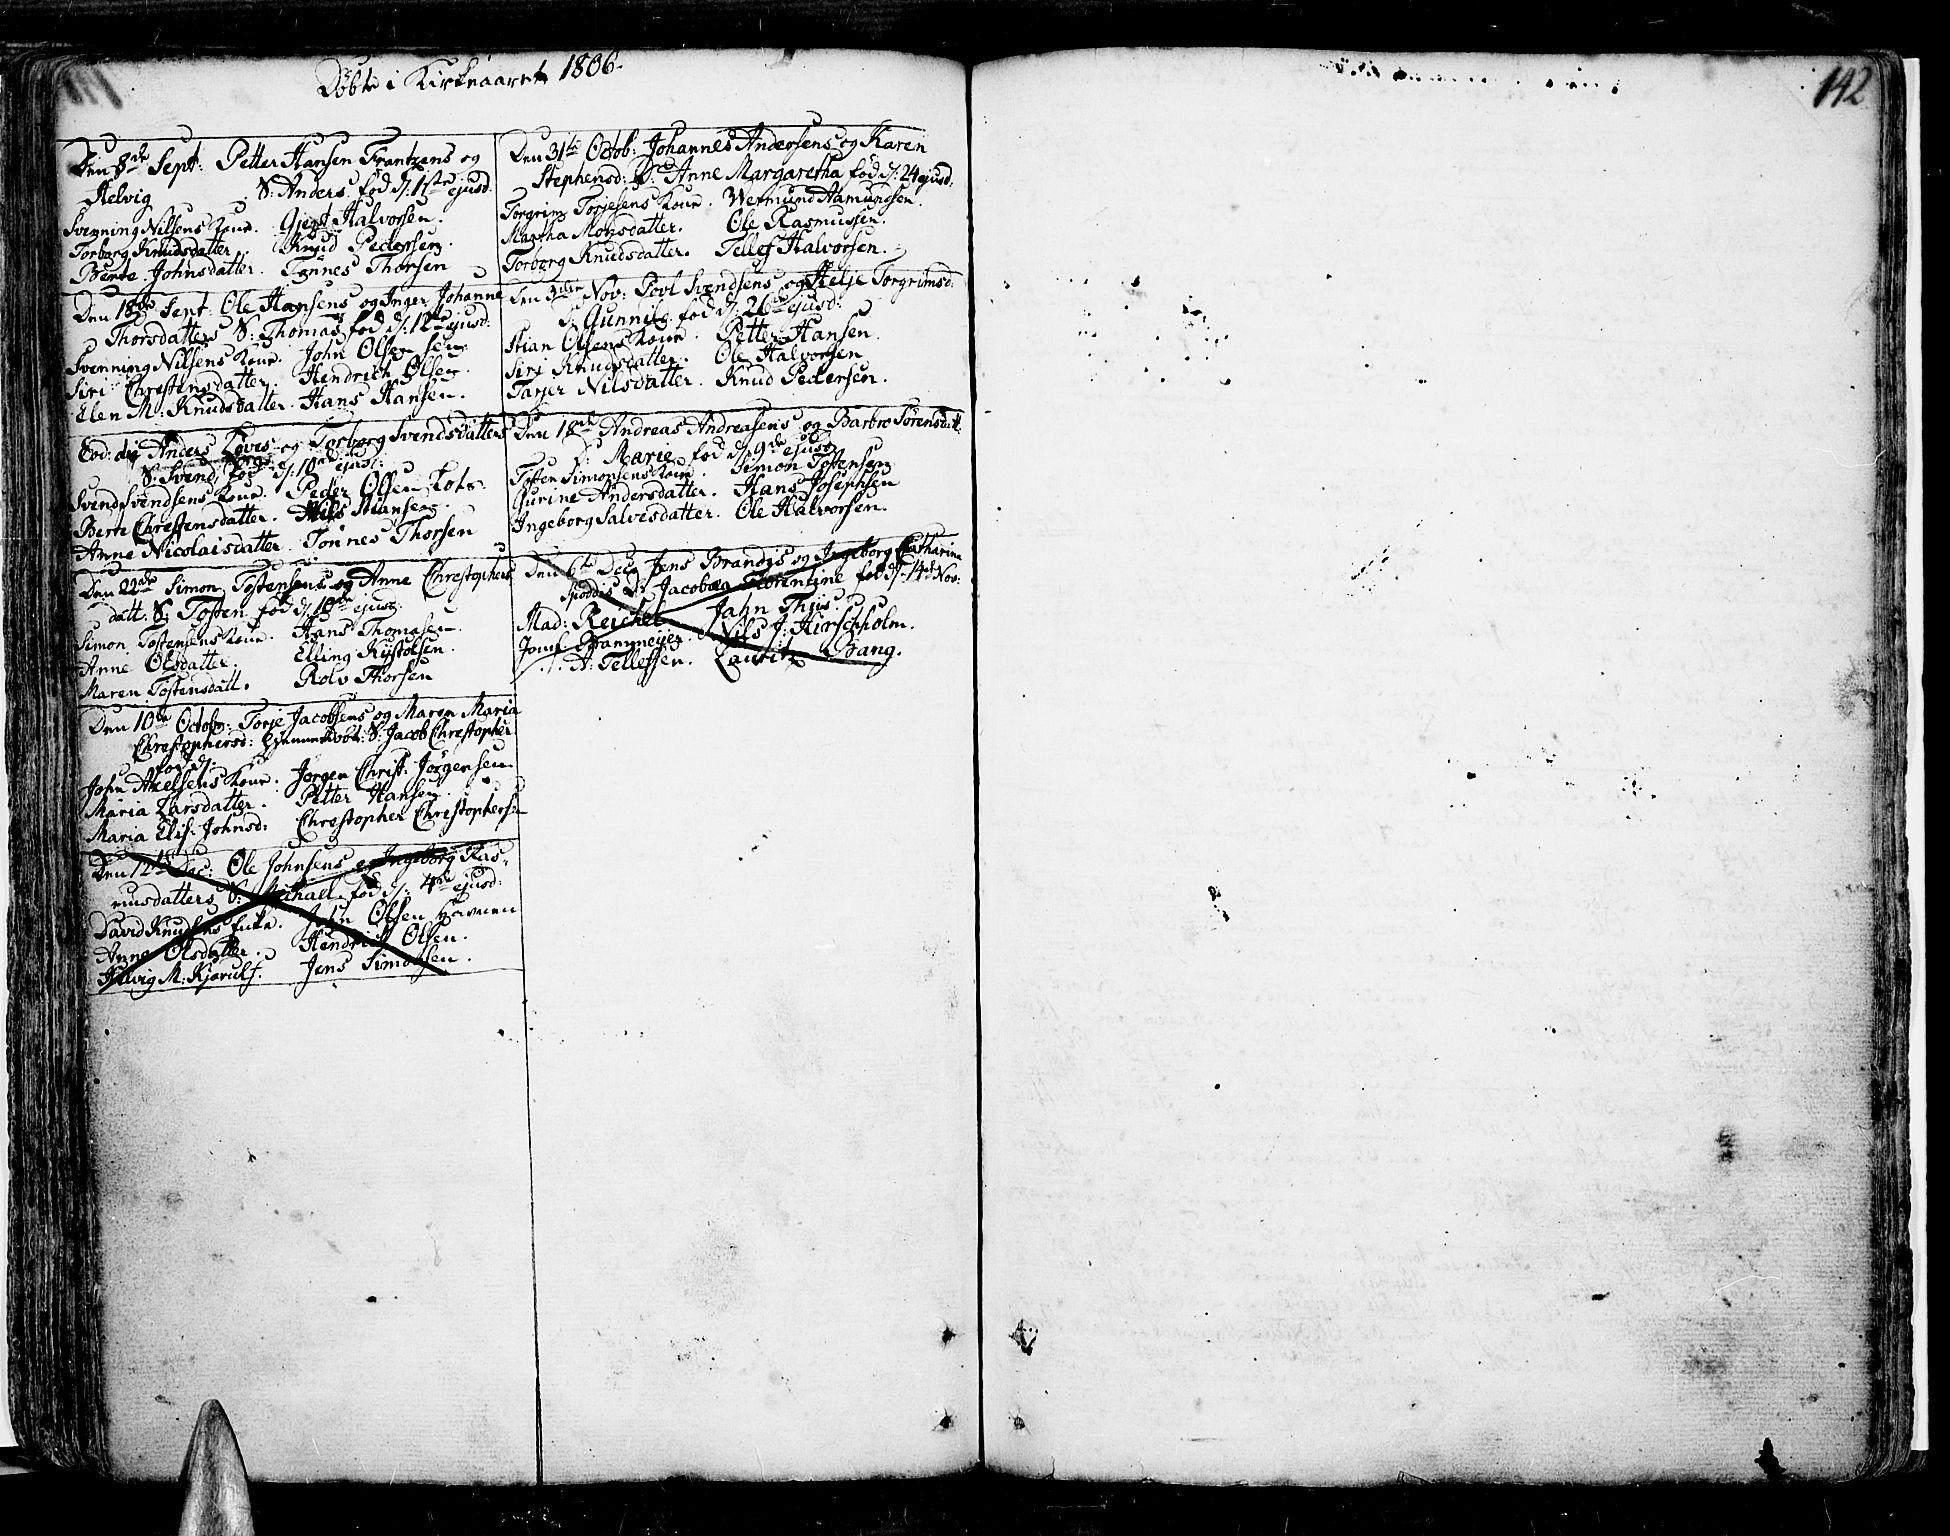 Døbte i Kirkeaaret 1806.
142
Den 8de Sept: Petter Hansen Frantzens og
Helvig S: Anders fød d: 1ste ejusd:
Svenning Nilsens Kone. Gjert Halvorsen.
Torborg Knudsdatter. Knud Pedersen.
Berte Johnsdatter. Tønnes Thorsen
Den 18de Sept: Ole Hansens og Inger Johanne
Thorsdatters S: Thomas fød d: 12te ejusd:
Svenning Nilsens Kone. John Olsen sen:
Siri Chrestensdatter. Hendrich Olsen.
Elen M: Knudsdatter. Hans Hansen.
Eod: die Anders Løves og Torborg Svendsdatters
S: Svend fød d: 10de ejusd:
Svend Svendsens Kone. Peder Olsen Lots.
Berte Chrestensdatter. Nils Stiansen.
Anne Nicolaisdatter. Tønnes Thorsen
Den 22de Simon Tostensens og Anne Christophers
datt: S: Tosten fød d: 10de ejusd:
Simon Tostensens Kone. Hans Thomasen.
Anne Olsdatter. Elling Rystolsen.
Maren Tostensdatt. Rolv Thorsen
Den 10de Octob: Torje Jacobsens og Maren Maria
Christophersd: hjemmedøbt: S: Jacob Christopher
fød d:
John Axelsens Kone. Jørgen Christ: Jørgensen
Maria Larsdatter. Petter Hansen.
Maria Elis: Johnsd: Christopher Christophersen
Den 12te Dec: Ole Johnsens og Ingeborg Ras-
musdatters S: Michall fød d: 4de ejusd:
David Knudsens Enke. John Olsen Havnen
Anne Olsdatter. Hendrich Olsen.
Helvig M: Kjerulf. Jens Simonsen.
Den 31te Octob: Johannes Andersens og Karen
Stephensd: D: Anne Margaretha fød d: 24 ejusd:
Torgrim Torjesens Kone. Wermund Aamundsen.
Martha Monsdatter. Ole Rasmussen.
Torborg Knudsdatter. Tellef Halvorsen.
Den 3die Nov: Povl Svendsens og Helje Torgrimsd:
D: Gunnild fød d: 26de ejusd:
Stian Olsens Kone. Petter Hansen.
Siri Knudsdatter. Ole Halvorsen
Tarjer Nilsdatter. Knud Pedersen.
Den 18de Andreas Andreasens og Barbro Sørensdatt:
D: Marie fød d: 9de ejusd
Tosten Simonsens Kone. Simon Tostensen
Gurine Andersdatter. Hans Josephsen
Ingeborg Salvesdatter. Ole Halvorsen.
Den 6te Dec: Jens Brandis og Ingeborg Catharina
D: Jacobea Florentine fød d: 14de Nov:
Mad: Reichel Jahn Thiis.
Jomf: Stammeijer. Nils J: Hirschholm.
A: Tellefsen. Lauritz Bang.